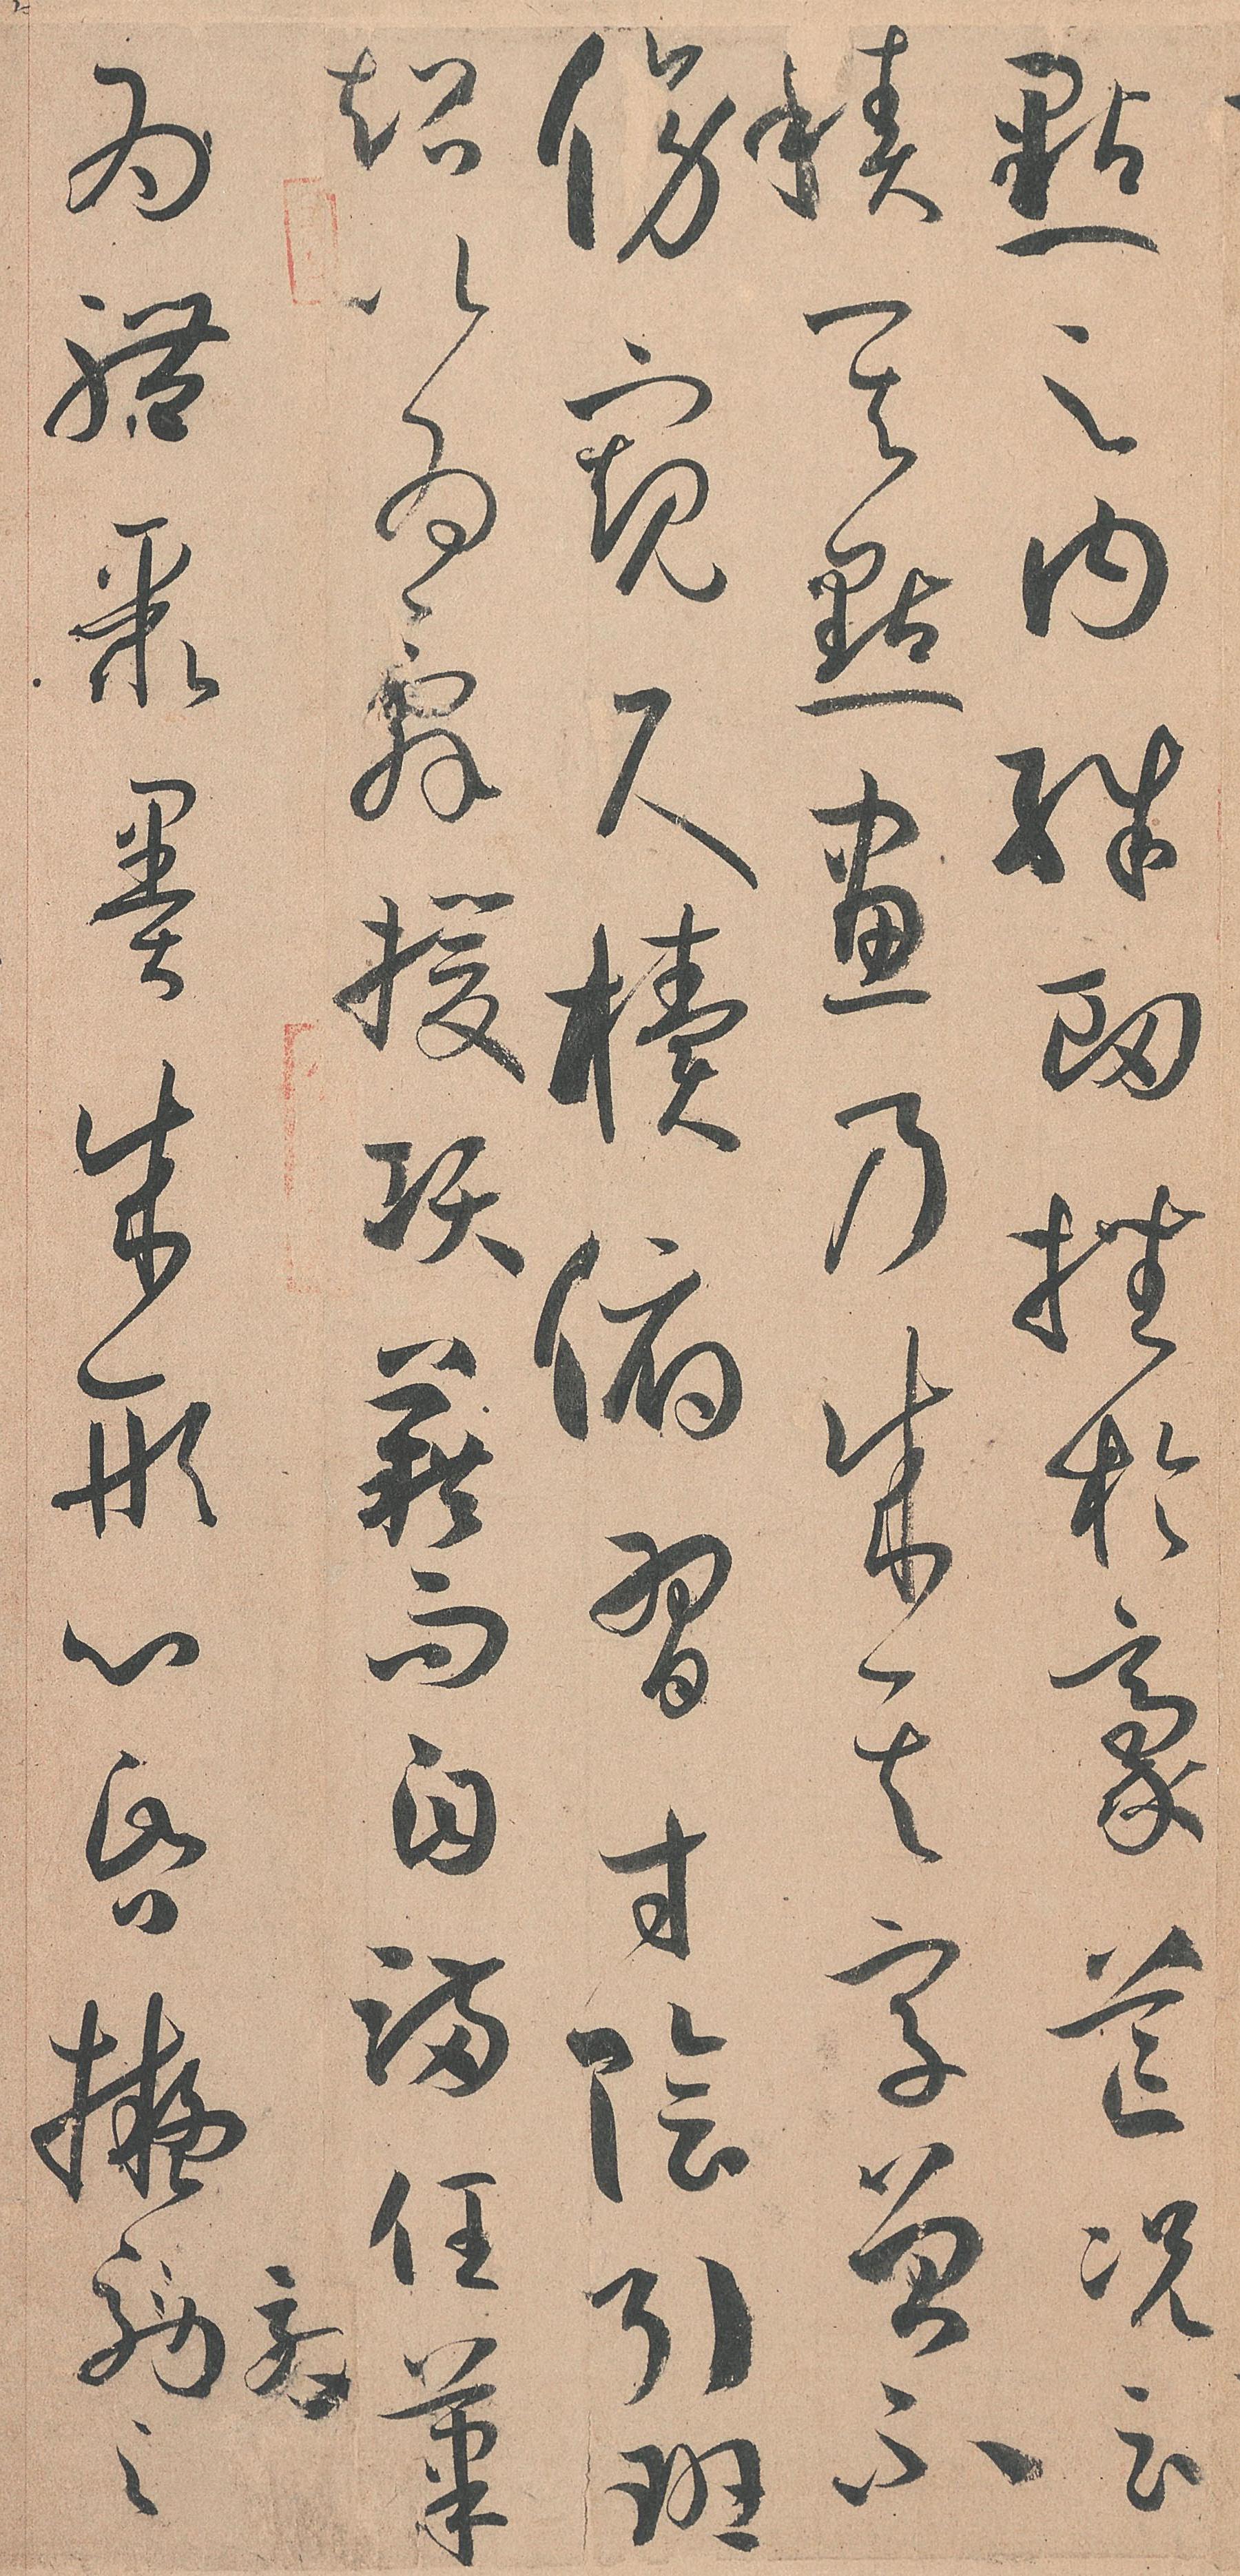 點之內殊衂挫於豪芒況云
積其點畫乃成其字曾不
傍窺尺櫝俯習寸陰引班
超以為辭援項籍而自滿任筆
為體聚墨成形心昏擬
効之
方